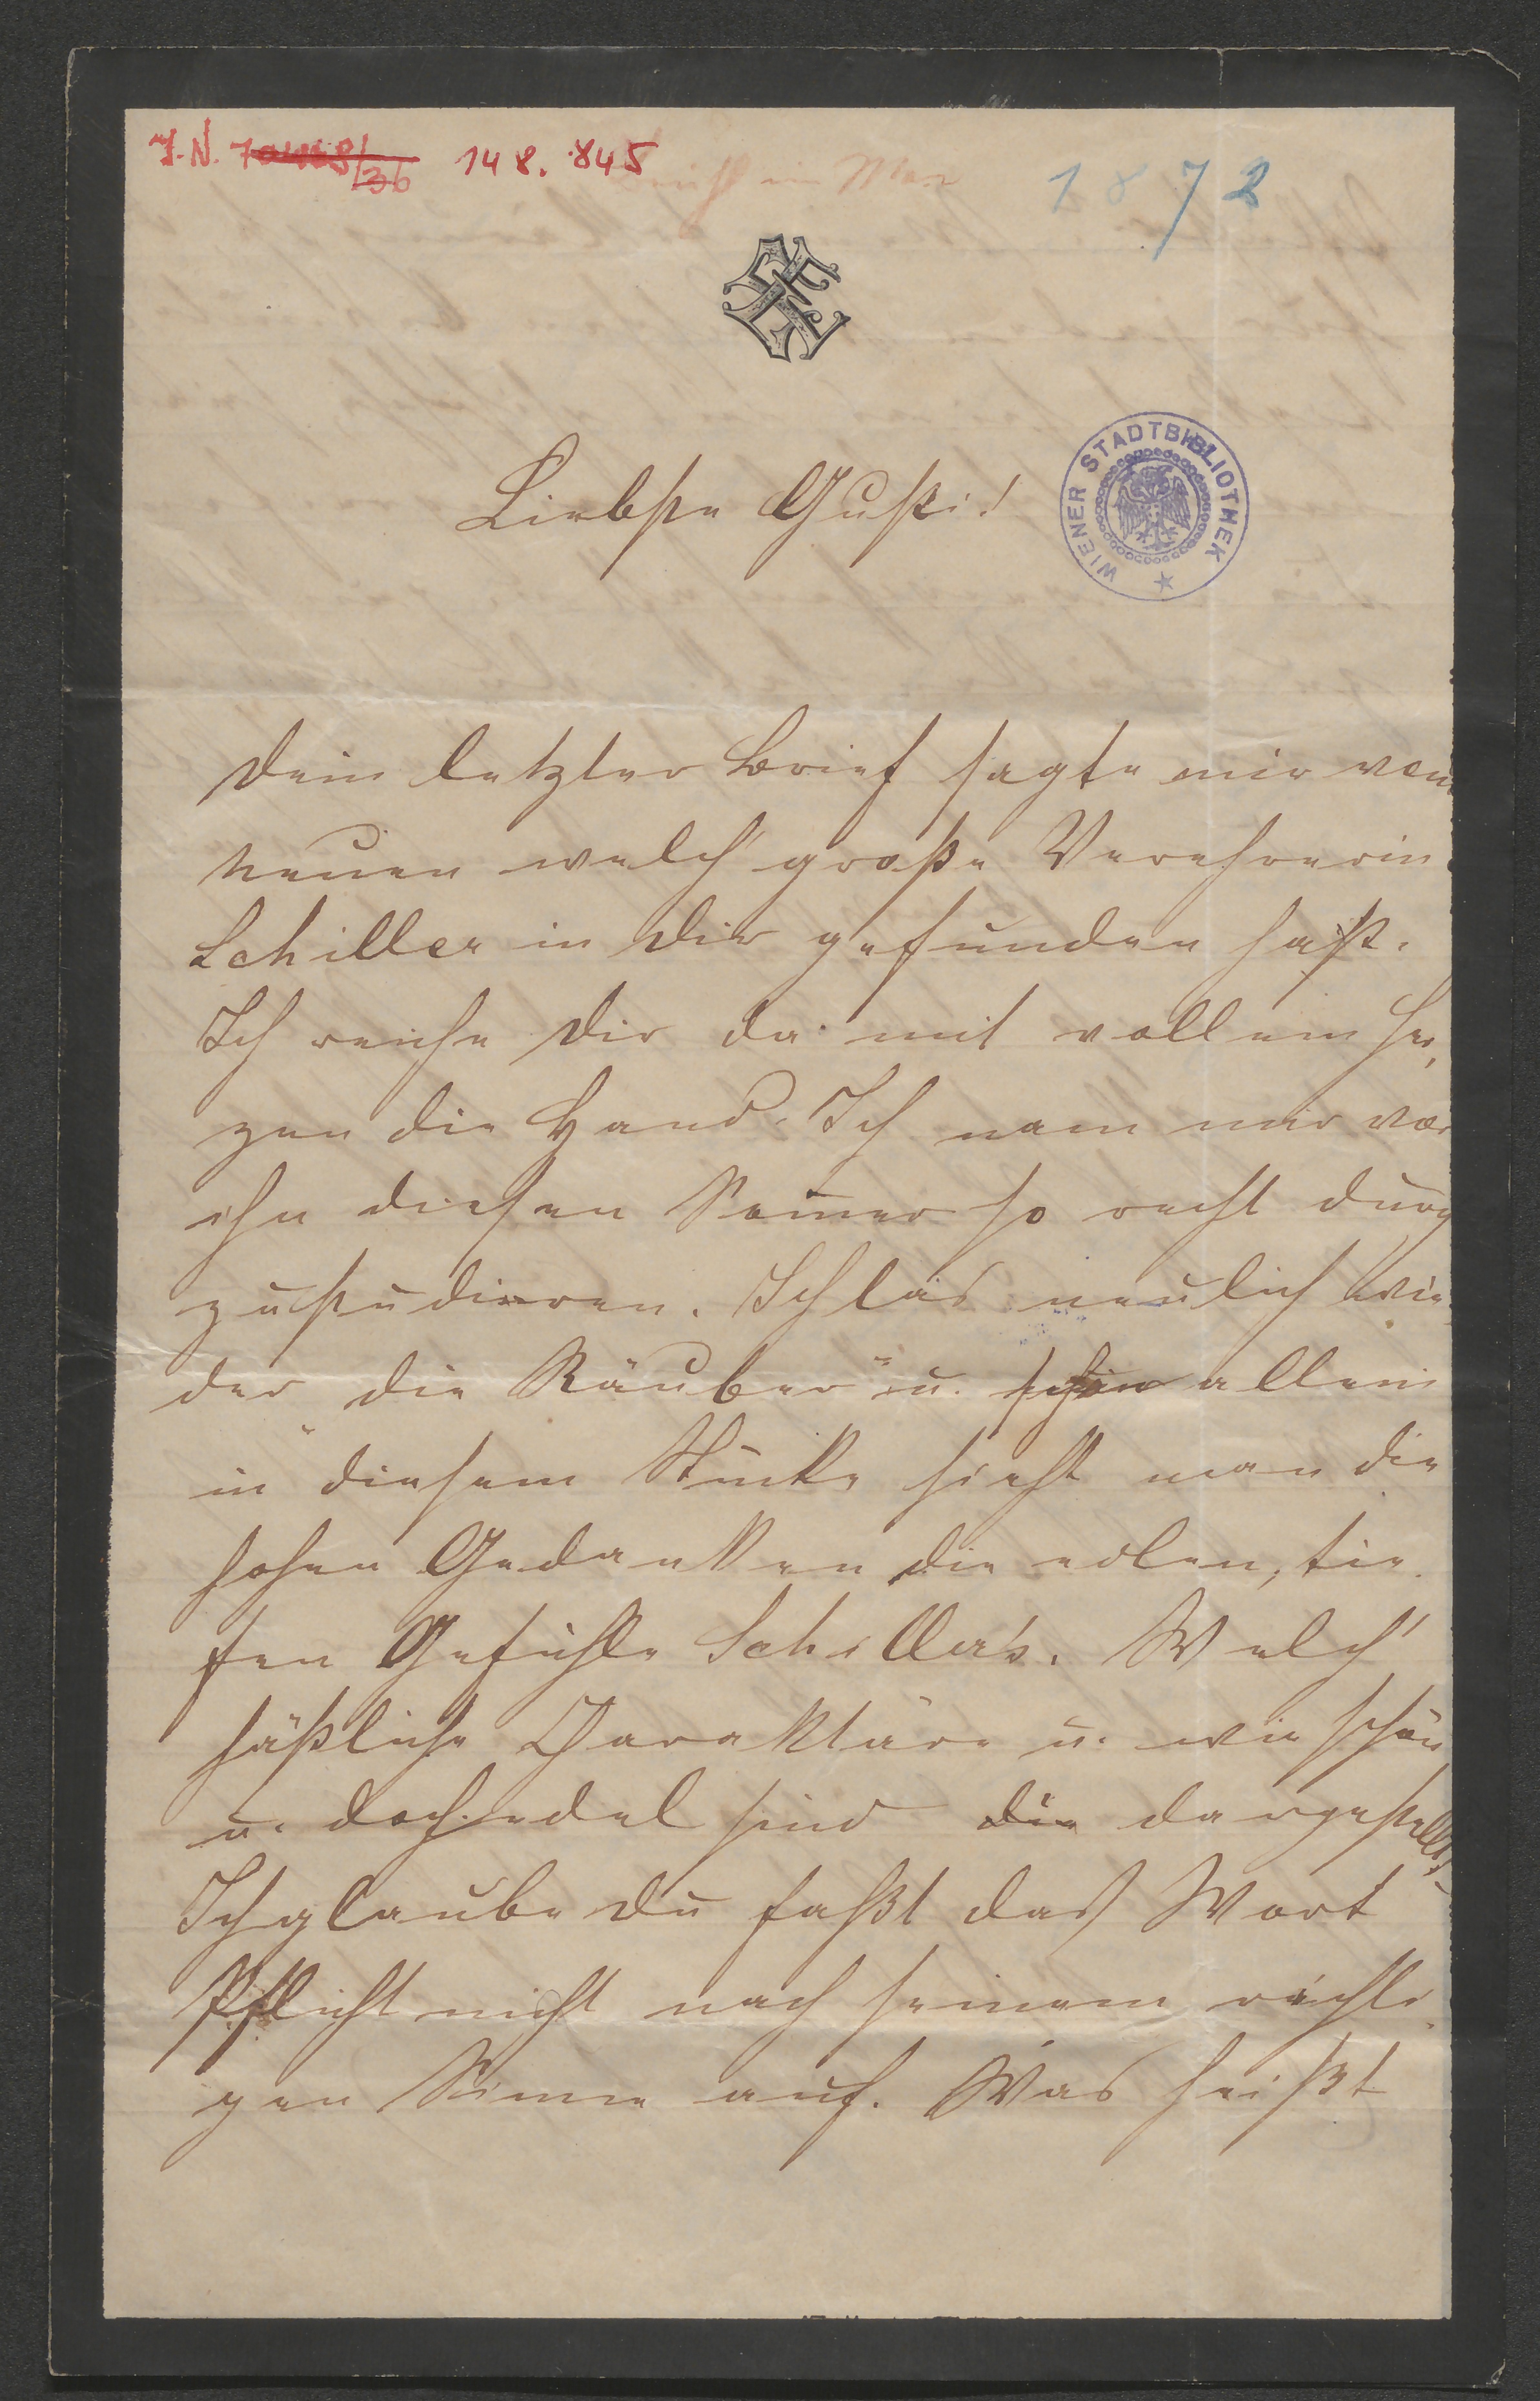 I.N. 70468/36 148.845
1872
WIENER STADTBIBLIOTHEK
Liebste Gusti!
Dein letzter Brief sagte mir von
neuen welch' große Verehrerin
Schiller in Dir gefunden hast.
Ich reiche Dir da mit vollem Her,
zen die Hand. Ich nam mir vor
ihn diesen Somer so recht durch
zustudieren. Ich las neulich wie
der die „Räuber" u. schon allein
in diesem Stücke sieht man die
hohen Gedanken die edlen, tie
fen Gefühle Schiller's. Welch'
häßliche Charaktäre u. wie schön
u. doch edel sind die dargestellt!
Ich glaube Du faßt das Wort
Pflicht nicht nach seinem richti
gen Sinne auf. Was heißt